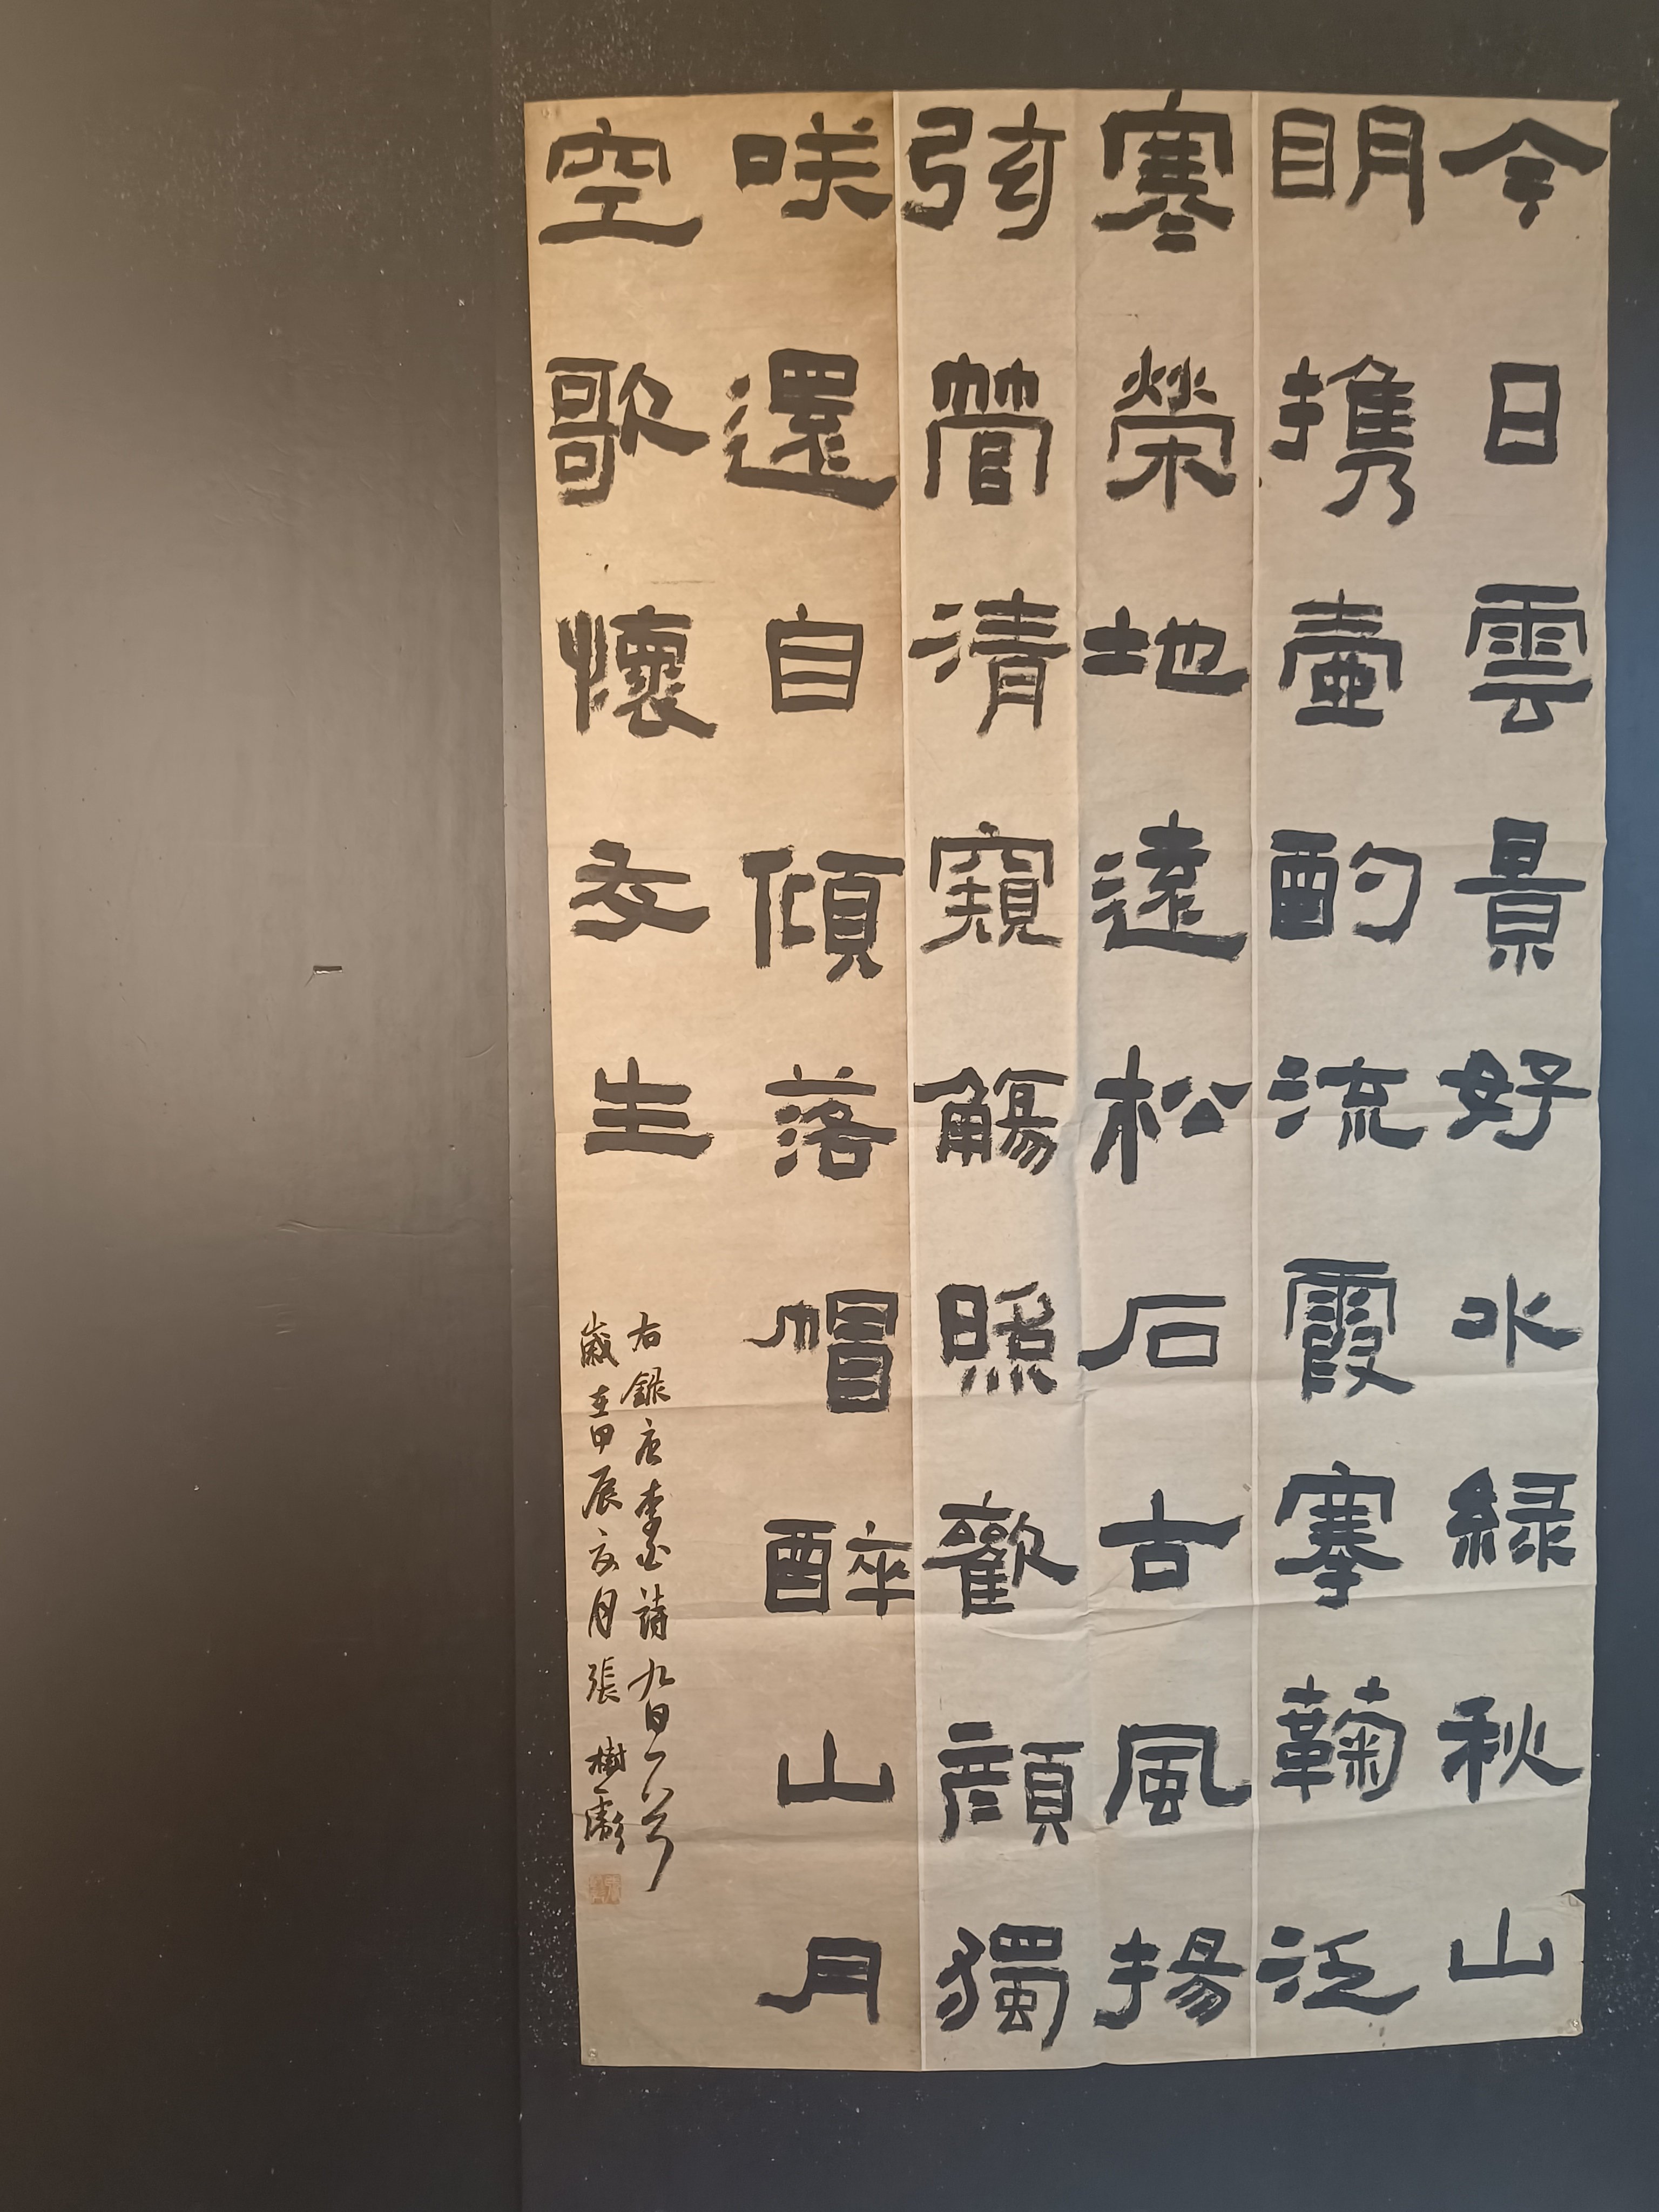 今日雲景好水緑秋山
明携壷酌流霞搴鞠泛
寒榮地遠松石古風揚
弦管清窺觴照歡顔獨
咲還自傾落帽醉山月
空歌懷友生
右録唐李白詩九日一首
歲在甲辰之月張樹